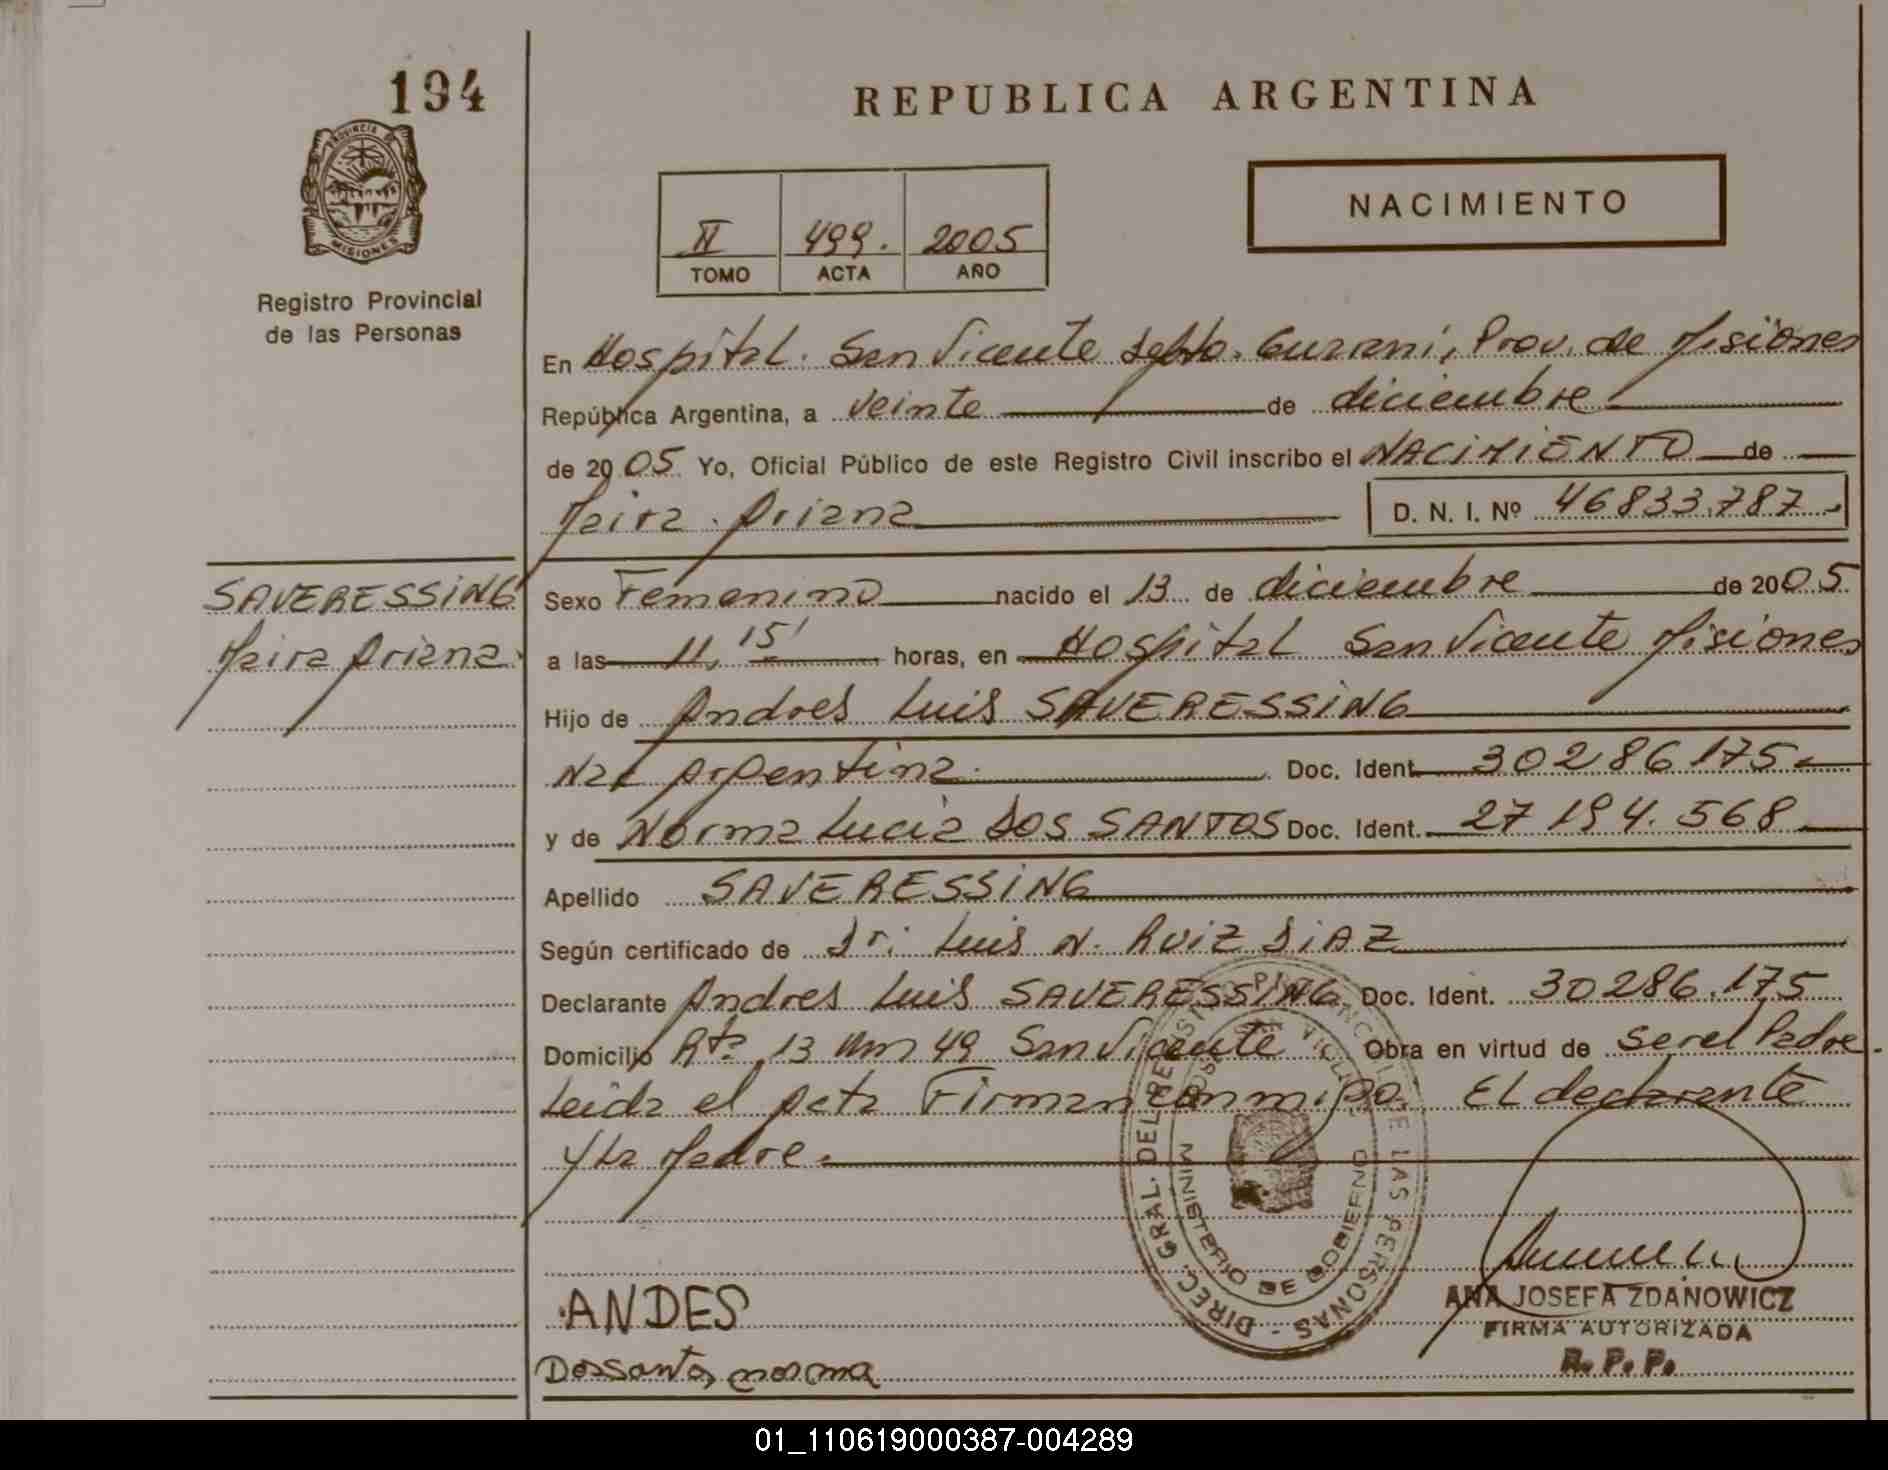 194
REPUBLICA ARGENTINA
PROVINCIA DE
MISIONES
Registro Provincial
de las Personas
NACIMIENTO
II 499. 2005
TOMO ACTA AÑO
En Hospital. San Vicente Depto. Guarani, Prov. de Misiones
República Argentina, a veinte de diciembre
de 2005 Yo, Oficial Público de este Registro Civil inscribo el NACIMIENTO de
Maira Ariana D. N. I. Nº 46833.787.
SAVERESSING
Maira Ariana.
Sexo Femenino nacido el 13 de diciembre de 2005.
a las 11,15' horas, en Hospital San Vicente Misiones
Hijo de Andres Luis SAVERESSING
Nac Argentina. Doc. Ident. 30286175.
y de Norma Lucia DOS SANTOS Doc. Ident. 27194.568
Apellido SAVERESSING
Según certificado de Dr: Luis N. RUIZ DIAZ
Declarante Andres Luis SAVERESSING Doc. Ident. 30286.175
Domicilio Rta 13 Km 49 San Vicente Obra en virtud de ser el Padre.
Leida el acta Firman conmigo. EL declarante
y la Madre.
DIREC. GRAL. DEL REGISTRO PROVINCIAL DE LAS PERSONAS -
MINISTERIO DE GOBIERNO
ANDES
Dossantos norma
ANA JOSEFA ZDANOWICZ
FIRMA AUTORIZADA
R. P. P.
01_110619000387-004289